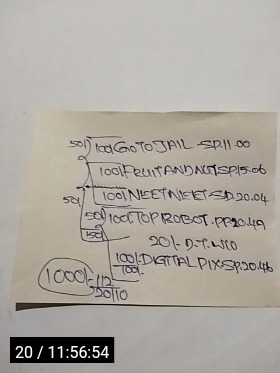 50/ 100/ GO TO JAIL - SP.11.00
100/ FRUIT AND NUT SP.15.06
100/ NEET NEET - SP.20.04
50/
50/ 100/ TOP ROBOT. PP.20.49
50/ 20/- D.T. W10
100/. DIGITAL PIX-SP.20.46
100/.
1000/- 112
20/10
20 / 11:56:54